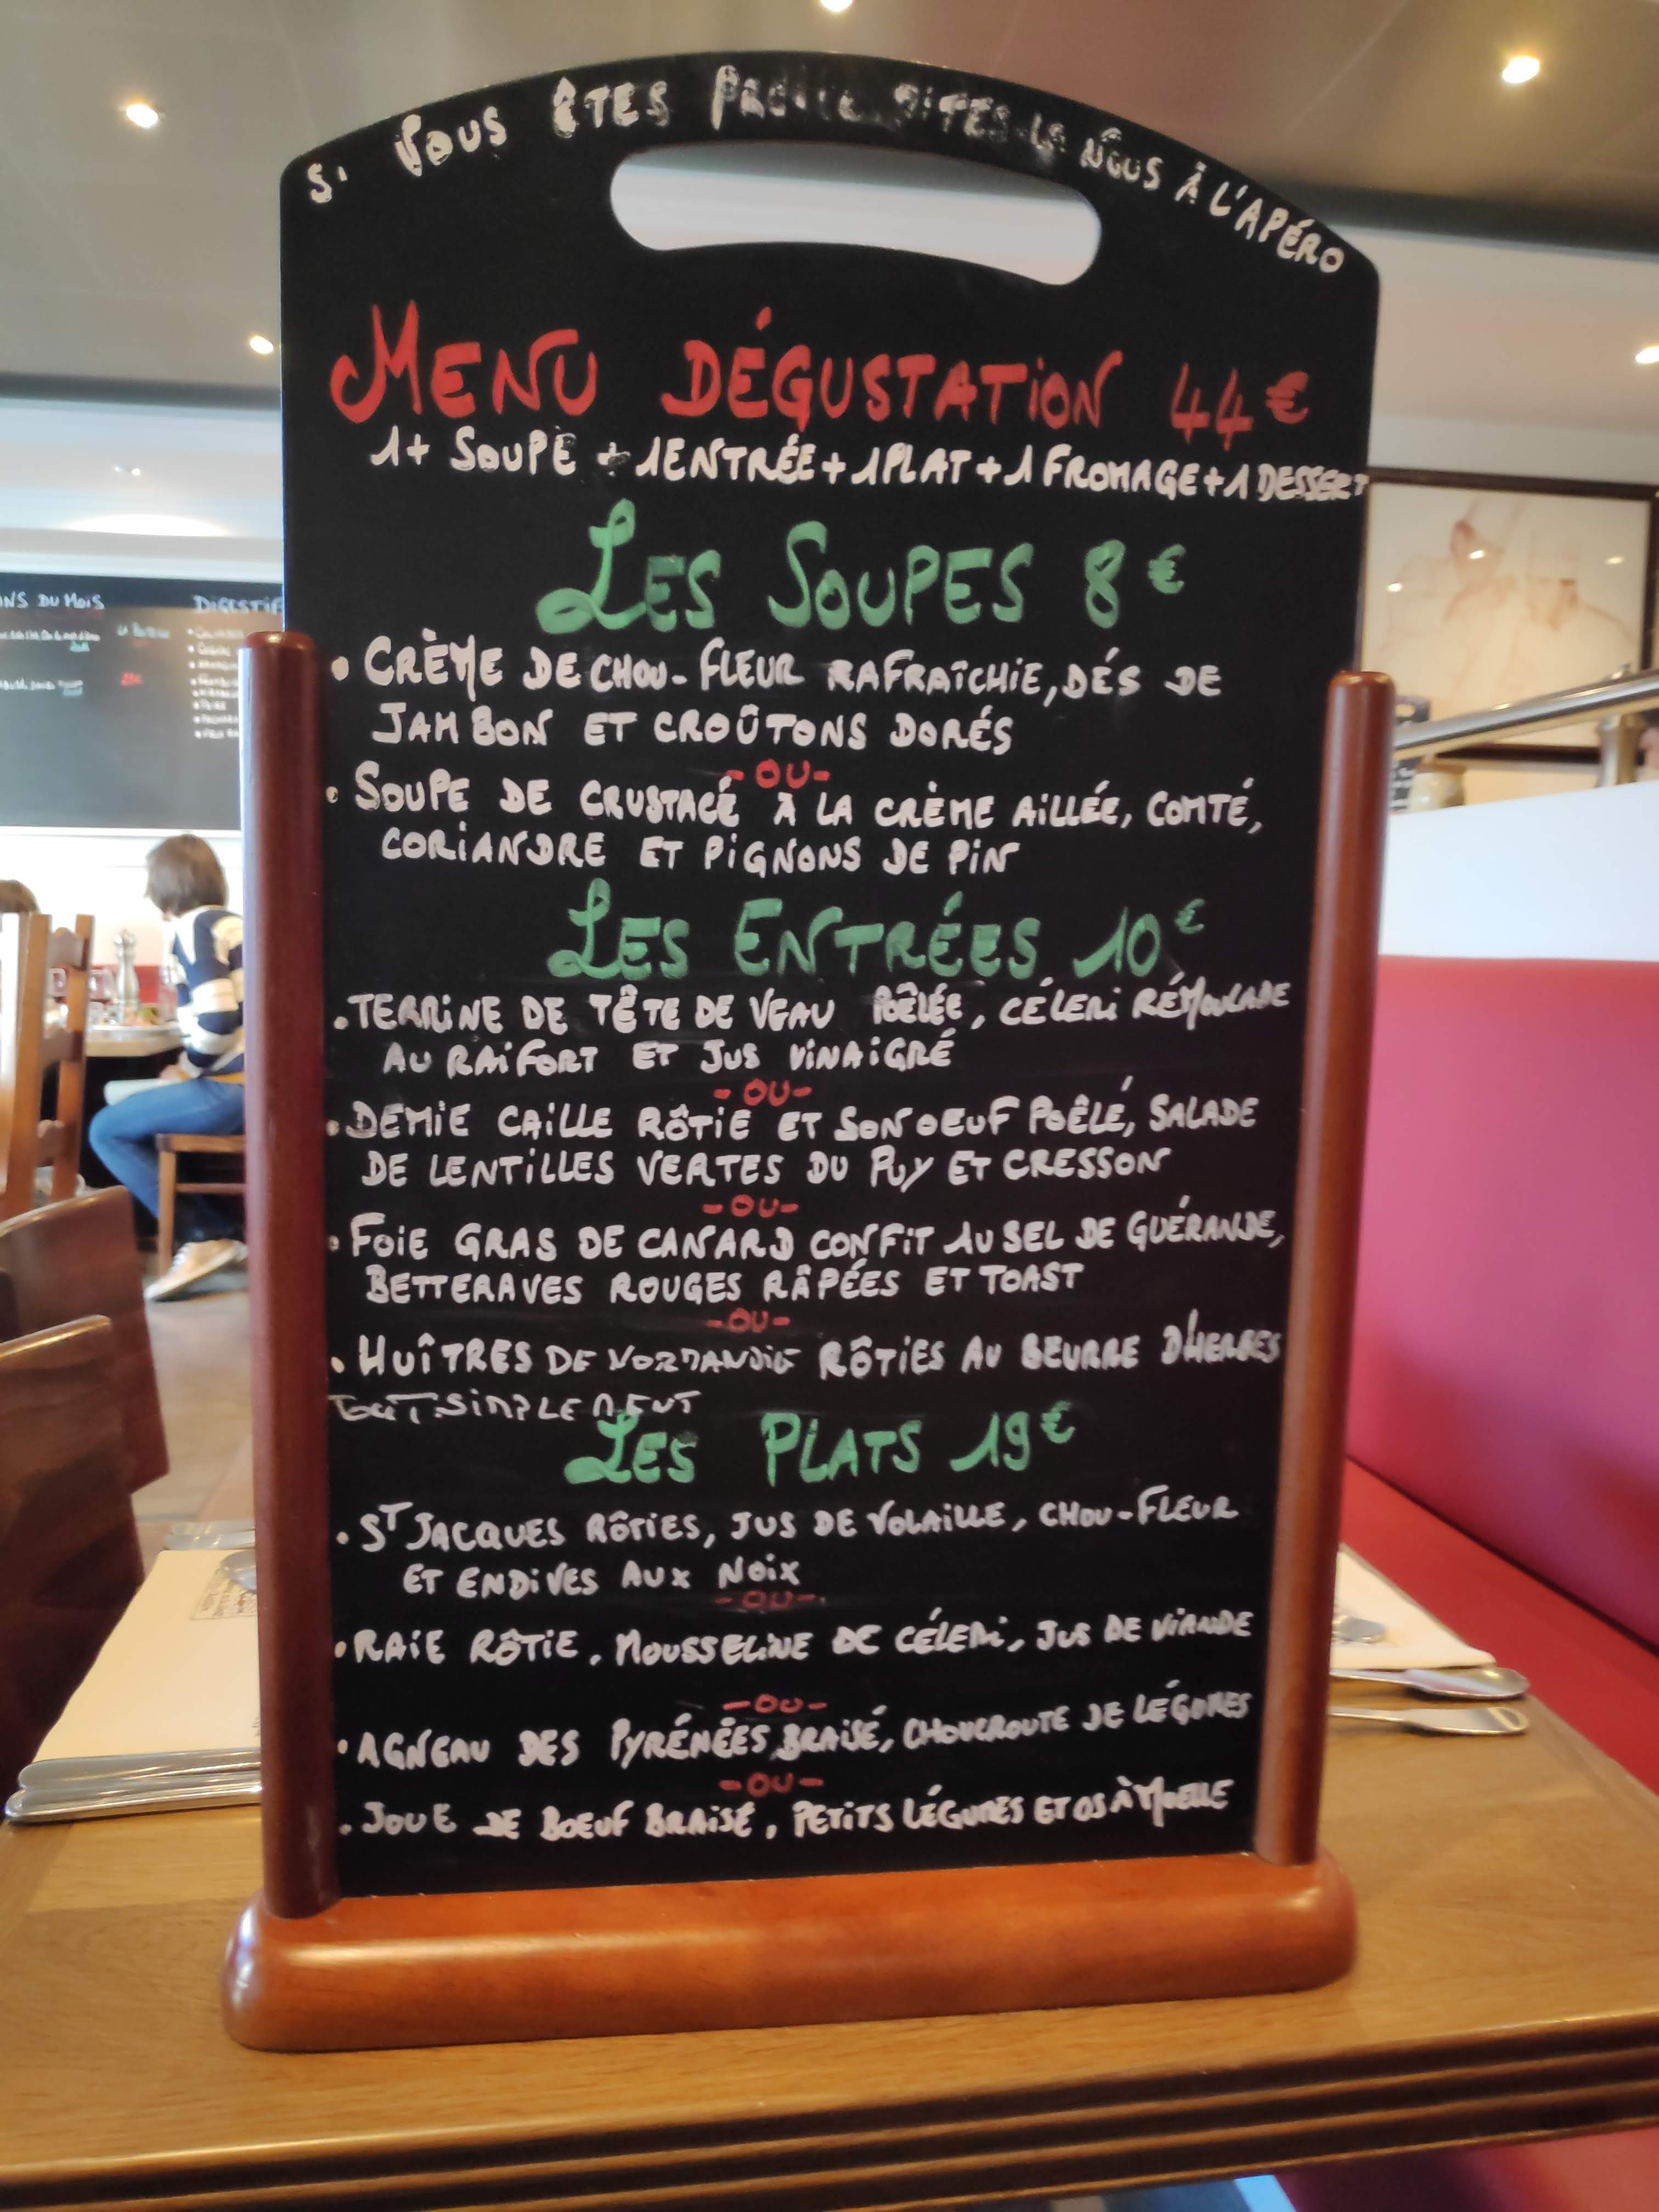 Si VOUS ÊTES DITES-LE NOUS À L'APÉRO
MENU DÉGUSTATION 44€
1+ SOUPE + 1ENTRÉE+1PLAT+1 FROMAGE+1 DESSERT
LES SOUPES 8€
• CRÈME DE CHOU-FLEUR RAFRAÎCHIE, DÉS DE
JAMBON ET CROÛTONS DORÉS
-OU-
• SOUPE DE CRUSTACÉ À LA CRÈME AiLLÉE, COMTÉ,
CORiANDRE ET PiGNONS DE PiN
LES ENTRÉES 10€
• TERRiNE DE TÊTE DE VEAU POÊLÉE, CÉLERi RÉMOULADE
AU RAiFORT ET JUS ViNAiGRÉ
-OU-
• DEMiE CAiLLE RÔTiE ET SON OEUF POÊLÉ, SALADE
DE LENTiLLES VERTES DU PUY ET CRESSON
-OU-
• FOiE GRAS DE CANARD CONFiT AU SEL DE GUÉRANDE,
BETTERAVES ROUGES RÂPÉES ET TOAST
-OU-
• HUÎTRES DE NORMANDiE RÔTiES AU BEURRE D'HERBES
TOUT SiMPLEMENT
LES PLATS 19€
• ST JACQUES RÔTiES, JUS DE VOLAiLLE, CHOU-FLEUR
ET ENDiVES AUX NOiX
-OU-
• RAiE RÔTiE, MOUSSELiNE DE CÉLERi, JUS DE ViANDE
-OU-
• AGNEAU DES PYRÉNÉES BRAiSÉ, CHOUCROUTE DE LÉGUMES
-OU-
• JOUE DE BOEUF BRAiSÉ, PETiTS LÉGUMES ET OS À MOELLE
NS DU MOiS
DiGESTiF